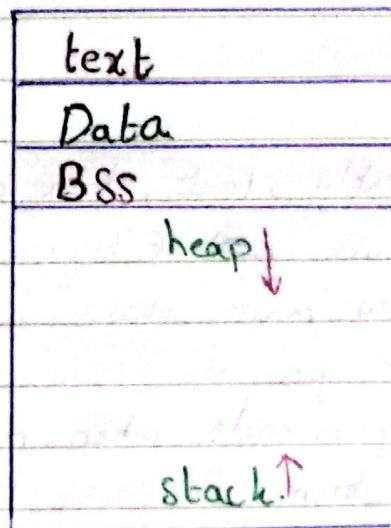 text
Data
BSS
heap
stack